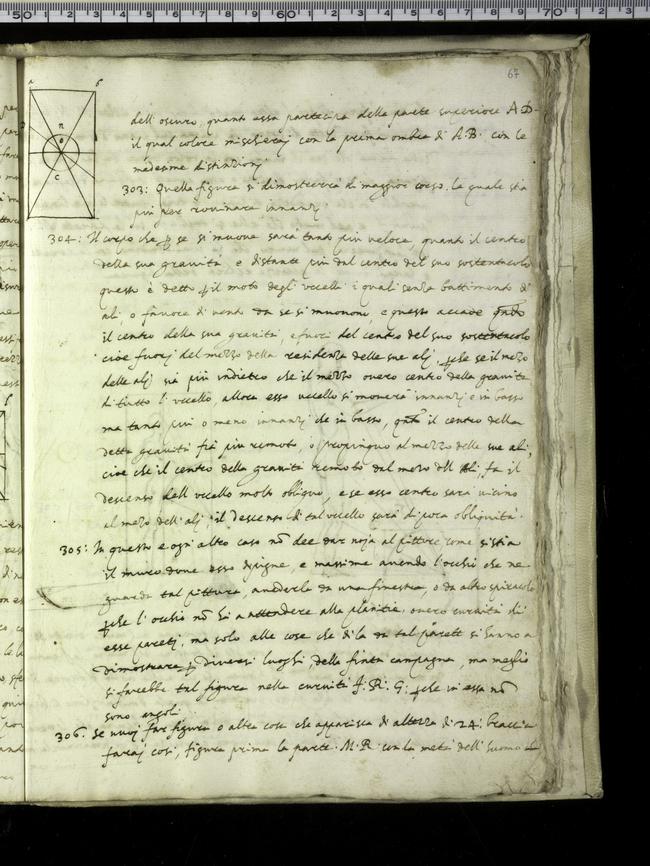 67
a b
n
e
c
dell oscuro, quanto essa partecipa della parte superiore A D.
il qual colore mischieraj con la prima ombra di A.B. con le
medesime distinzionj
303: Quella figura si dimostrerrà di maggior corso, la quale stia
più per rovinare innanzj
304: Il corpo che p se si muove sarà tanto più veloce, quanto il centro
della sua gravità è distante più dal centro del suo sostentacolo
questo è detto p il moto degli uccelli i quali senza battimento di
ali, o favore di vento da se si muovono, e questo accade qndo
il centro della sua gravità, è fuori del centro del suo sostentacolo
cioè fuorj del mezzo della residenza delle sue alj, pche se il mezo
delle alj sia più indietro che il mezzo overo centro della gravità
di tutto l uccello, allora esso uccello si moverà innanzj e in basso
ma tanto più o meno innanzj che in basso, qnto il centro della
detta gravità fia più remoto, o propinquo al mezzo delle sue ali,
cioè che il centro della gravità remoto dal mezo dell ali, fa il
descenso dell uccello molto obliquo, e se esso centro sarà vicino
al mezo dell'alj, il descenso di tal uccello sarà di poca obliquità.
305: In questo e ogni altro caso nõ dee dar noja al pittore come si stia
il muro dove esso dipigne, e massime avendo l'occhio che ne
guarda tal pittura, a vederla da una finestra, o da altro spiracolo
pche l'occhio nõ hà a attendere alla planitia, overo curvità di
esse paretj, ma solo alle cose che di la da tal parete si hanno a
dimostrare p diversi luoghi della finta campagna, ma meglio
si farebbe tal figura nella curvità F. R. G. pche in essa nõ
sono angoli
306. Se vuoj far figura o altra cosa che apparisca di altezza di 24: braccia
faraj così, figura prima la parete M.R con la metà dell'huomo